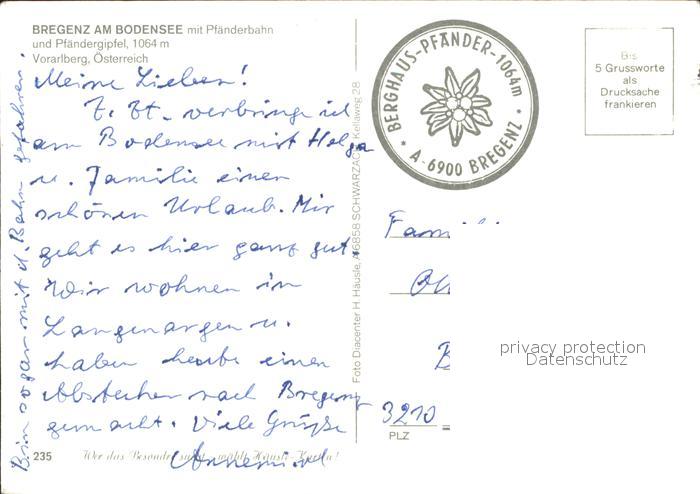 BREGENZ AM BODENSEE mit Pfänderbahn
und Pfändergipfel, 1064 m
Vorarlberg, Österreich
Meine Lieben!
Z. Zt. verbringe ich
am Bodensee mit Helga
u. Familie einen
schönen Urlaub. Mir
geht es hier ganz gut.
Wir wohnen in
Langenargen u.
haben heute einen
Abstecher nach Bregenz
gemacht. Viele Grüße
Annemirl
Bin sogar mit d. Bahn gefahren!
235
Wer das Besondre sucht - wählt Häusle-Karten!
Foto Diacenter H. Häusle, A-6858 SCHWARZACH, Kellaweg 28
BERGHAUS-PFÄNDER-1064m
* A-6900 BREGENZ *
Bis
5 Grussworte
als
Drucksache
frankieren
Fami
3210
PLZ
privacy protection
Datenschutz